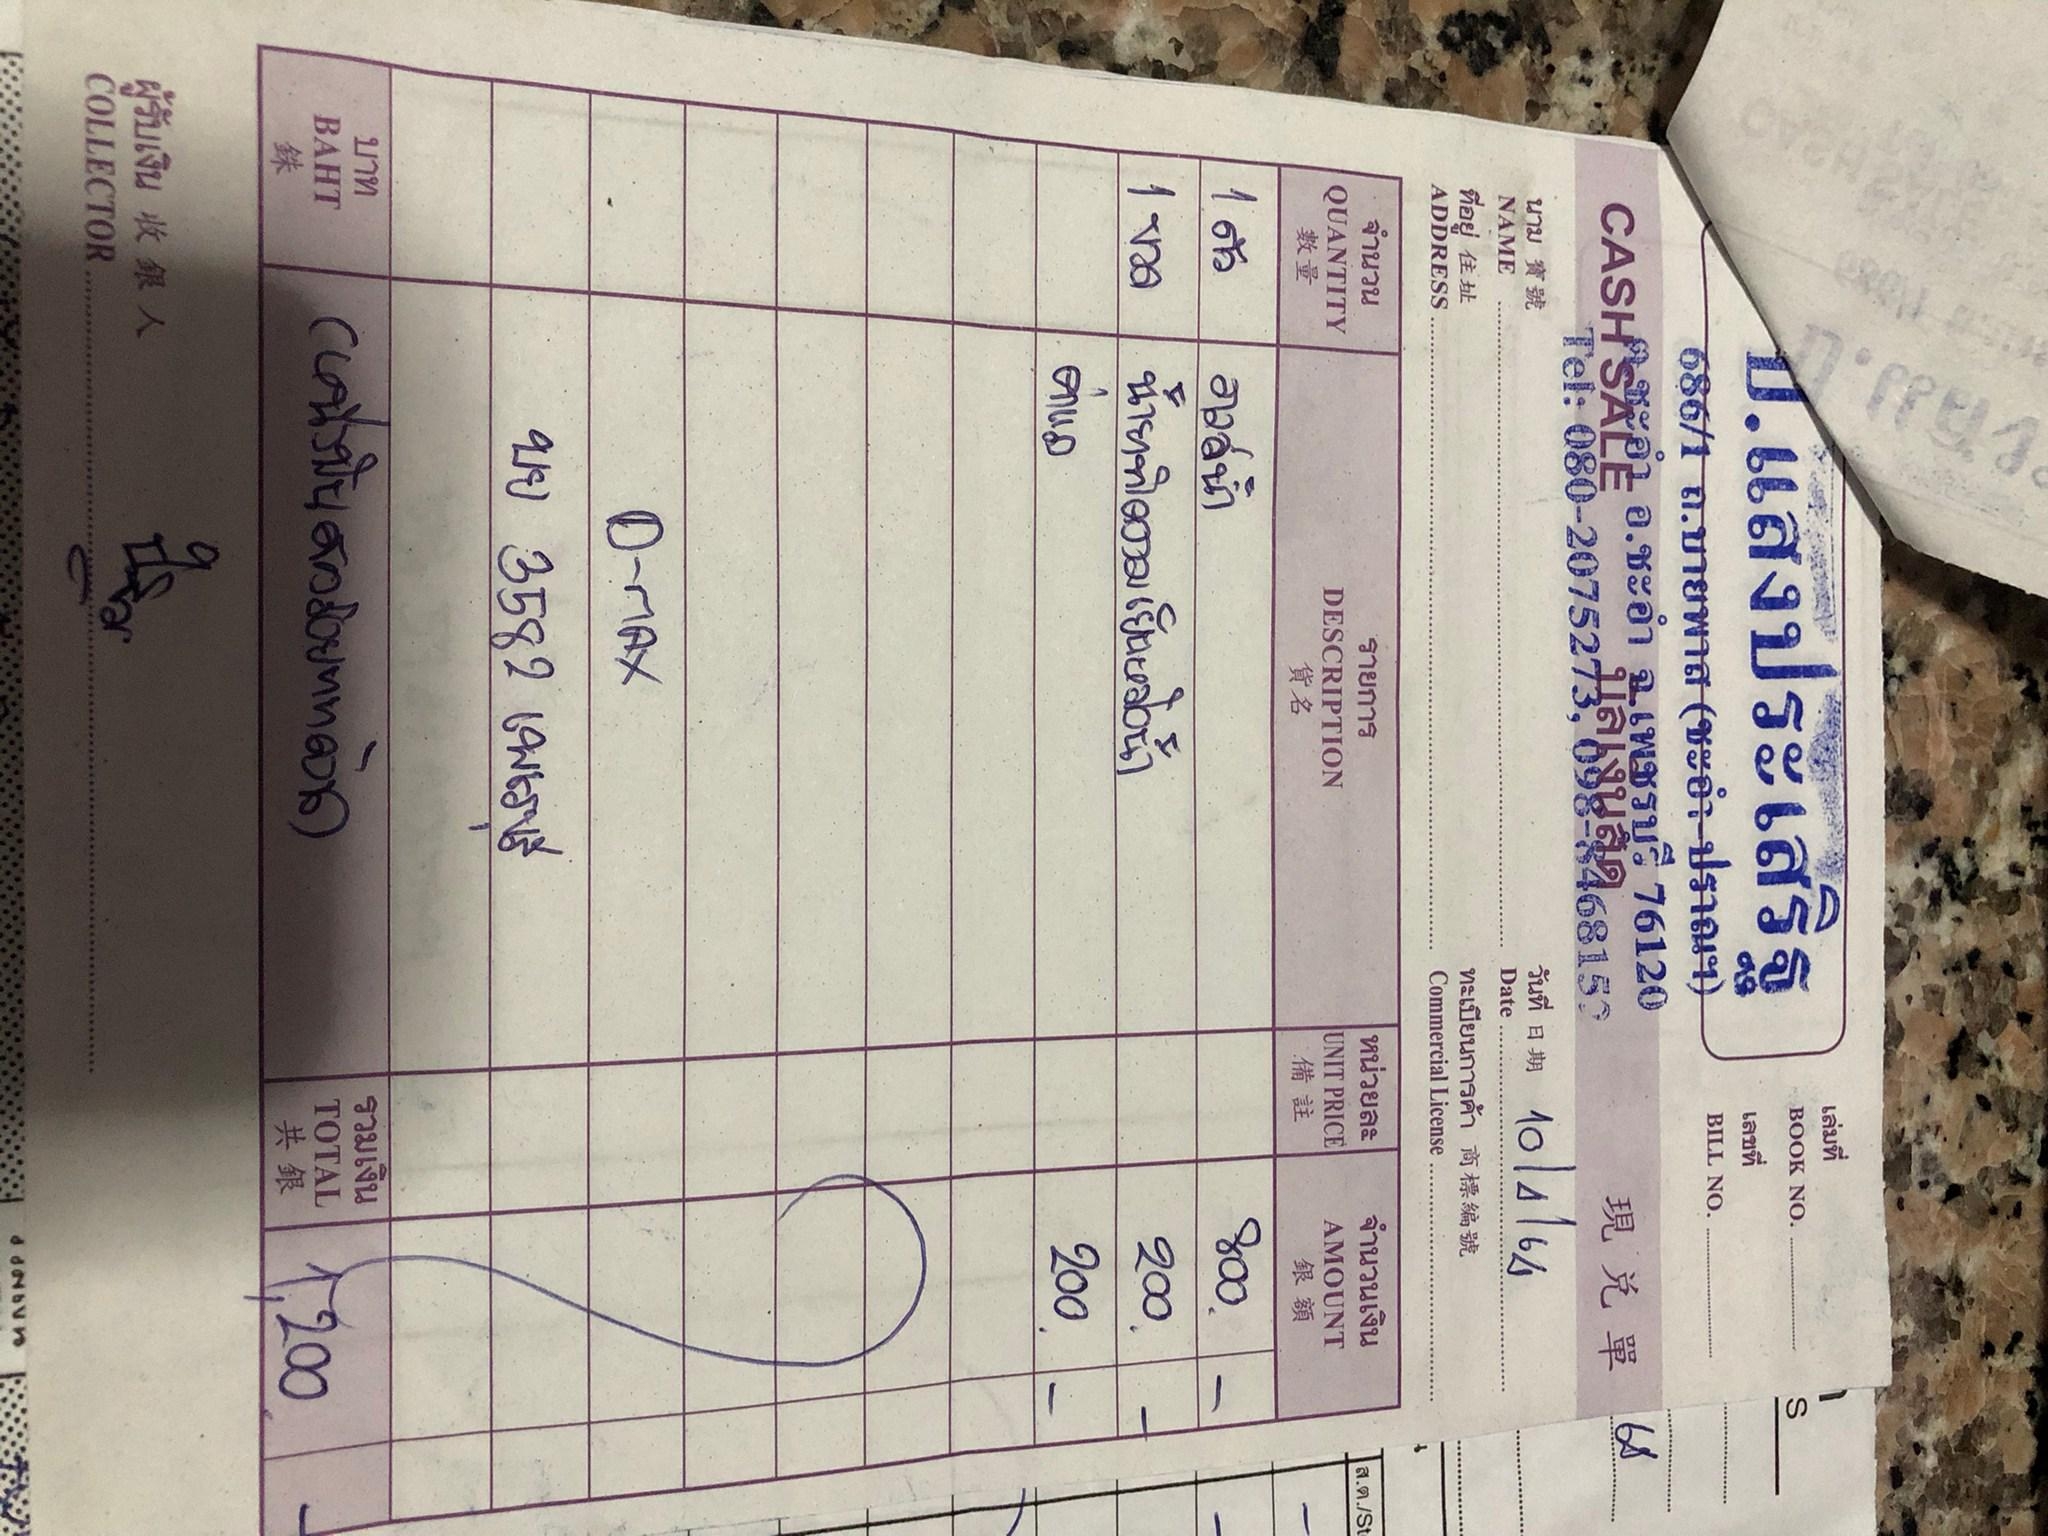 ป.แสงประเสริฐ
686/1 ถ.บายพาส (ชะอำ-ปราณฯ)
ต.ชะอำ อ.ชะอำ จ.เพชรบุรี 76120
Tel: 080-2075273, 098-
เล่มที่
BOOK NO.
เลขที่
BILL NO.
CASH SALE บิลเงินสด 現兌單
นาม 寶號
NAME
วันที่ 日期
Date 10/4/64
ที่อยู่ 住址
ADDRESS
ทะเบียนการค้า 商標編號
Commercial License
จำนวน รายการ หน่วยละ จำนวนเงิน
QUANTITY DESCRIPTION UNIT PRICE AMOUNT
數量 貨名 備註 銀額
1 ตัว วาวล์น้ำ 800. -
1 ขวด น้ำยาหม้อน้ำ 200. -
ค่าแรง 200. -
D-max
บย 3582 เพชรบุรี
บาท
BAHT
銖
(หนึ่งพันสองร้อยบาทถ้วน)
รวมเงิน
TOTAL
共銀
1,200 -
ผู้รับเงิน 收銀人
COLLECTOR